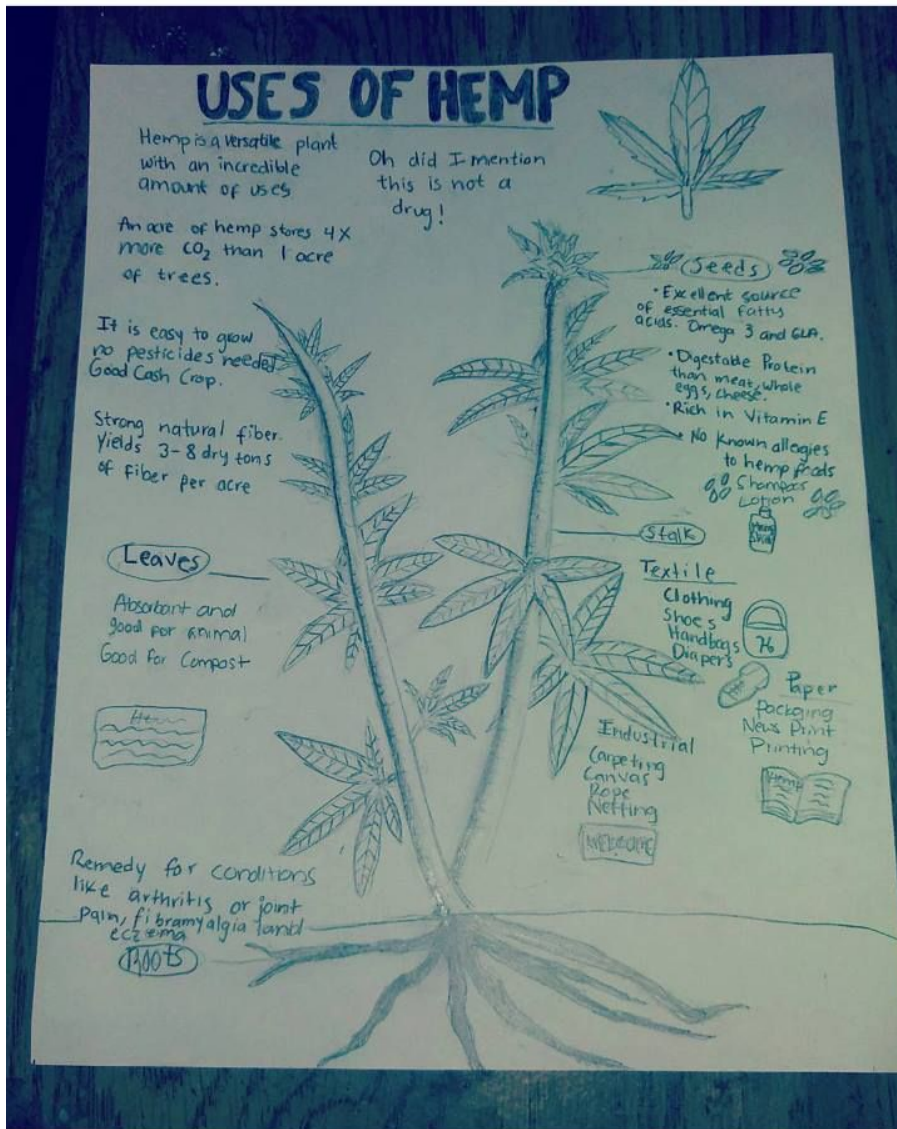 USES OF HEMP
Hemp is a versatile plant
with an incredible
amount of uses
Oh did I mention
this is not a
drug!
An acre of hemp stores 4X
more CO₂ than 1 acre
of trees.
It is easy to grow
no pesticides needed
Good Cash Crop.
Strong natural fiber.
Yields 3-8 dry tons
of fiber per acre
Leaves
Absorbant and
good for animal
Good for Compost
Remedy for conditions
like arthritis or joint
pain, fibramyalgia
eczema
Roots
Seeds
• Excellent source
of essential fatty
acids. Omega 3 and GLA.
• Digestable Protein
than meat, whole
eggs, cheese.
• Rich in Vitamin E
• No known allergies
to hemp foods
Shampoos
Lotion
Stalk
Textile
Clothing
Shoes
Handbags
Diapers
H
Paper
Packging
News Print
Printing
Hemp
Industrial
Carpeting
Canvas
Rope
Netting